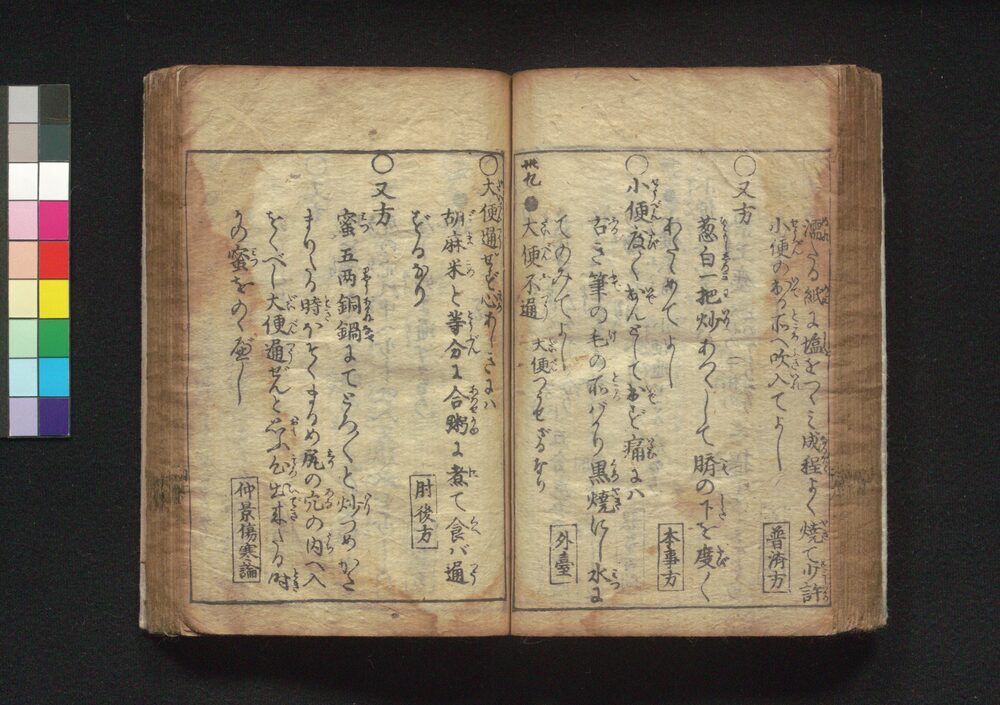 濡たる紙に塩をつゝミ成程よく焼て少許
小便のあな所へ吹入てよし
普済方
○又方
葱白一把炒あつくして臍の下を度〳〵
あたゝめてよし
本事方
○小便度〳〵おんとして出ず痛にハ
古き筆の毛の所バかり黒焼にし水に
てのみてよし
外臺
卅九 ●大便不通
大便つうせざるなり
○大便通ぜず心あしきにハ
胡麻米と等分に合粥に煮て食バ通
ずるなり
肘後方
○又方
蜜五両銅鍋にてとろ〳〵と炒つめかた
まりたる時かたくまるめ尻の穴の内へ入
をくべし大便通ぜんと思ふ心出来たる時
かの蜜をのくべし
仲景傷寒論